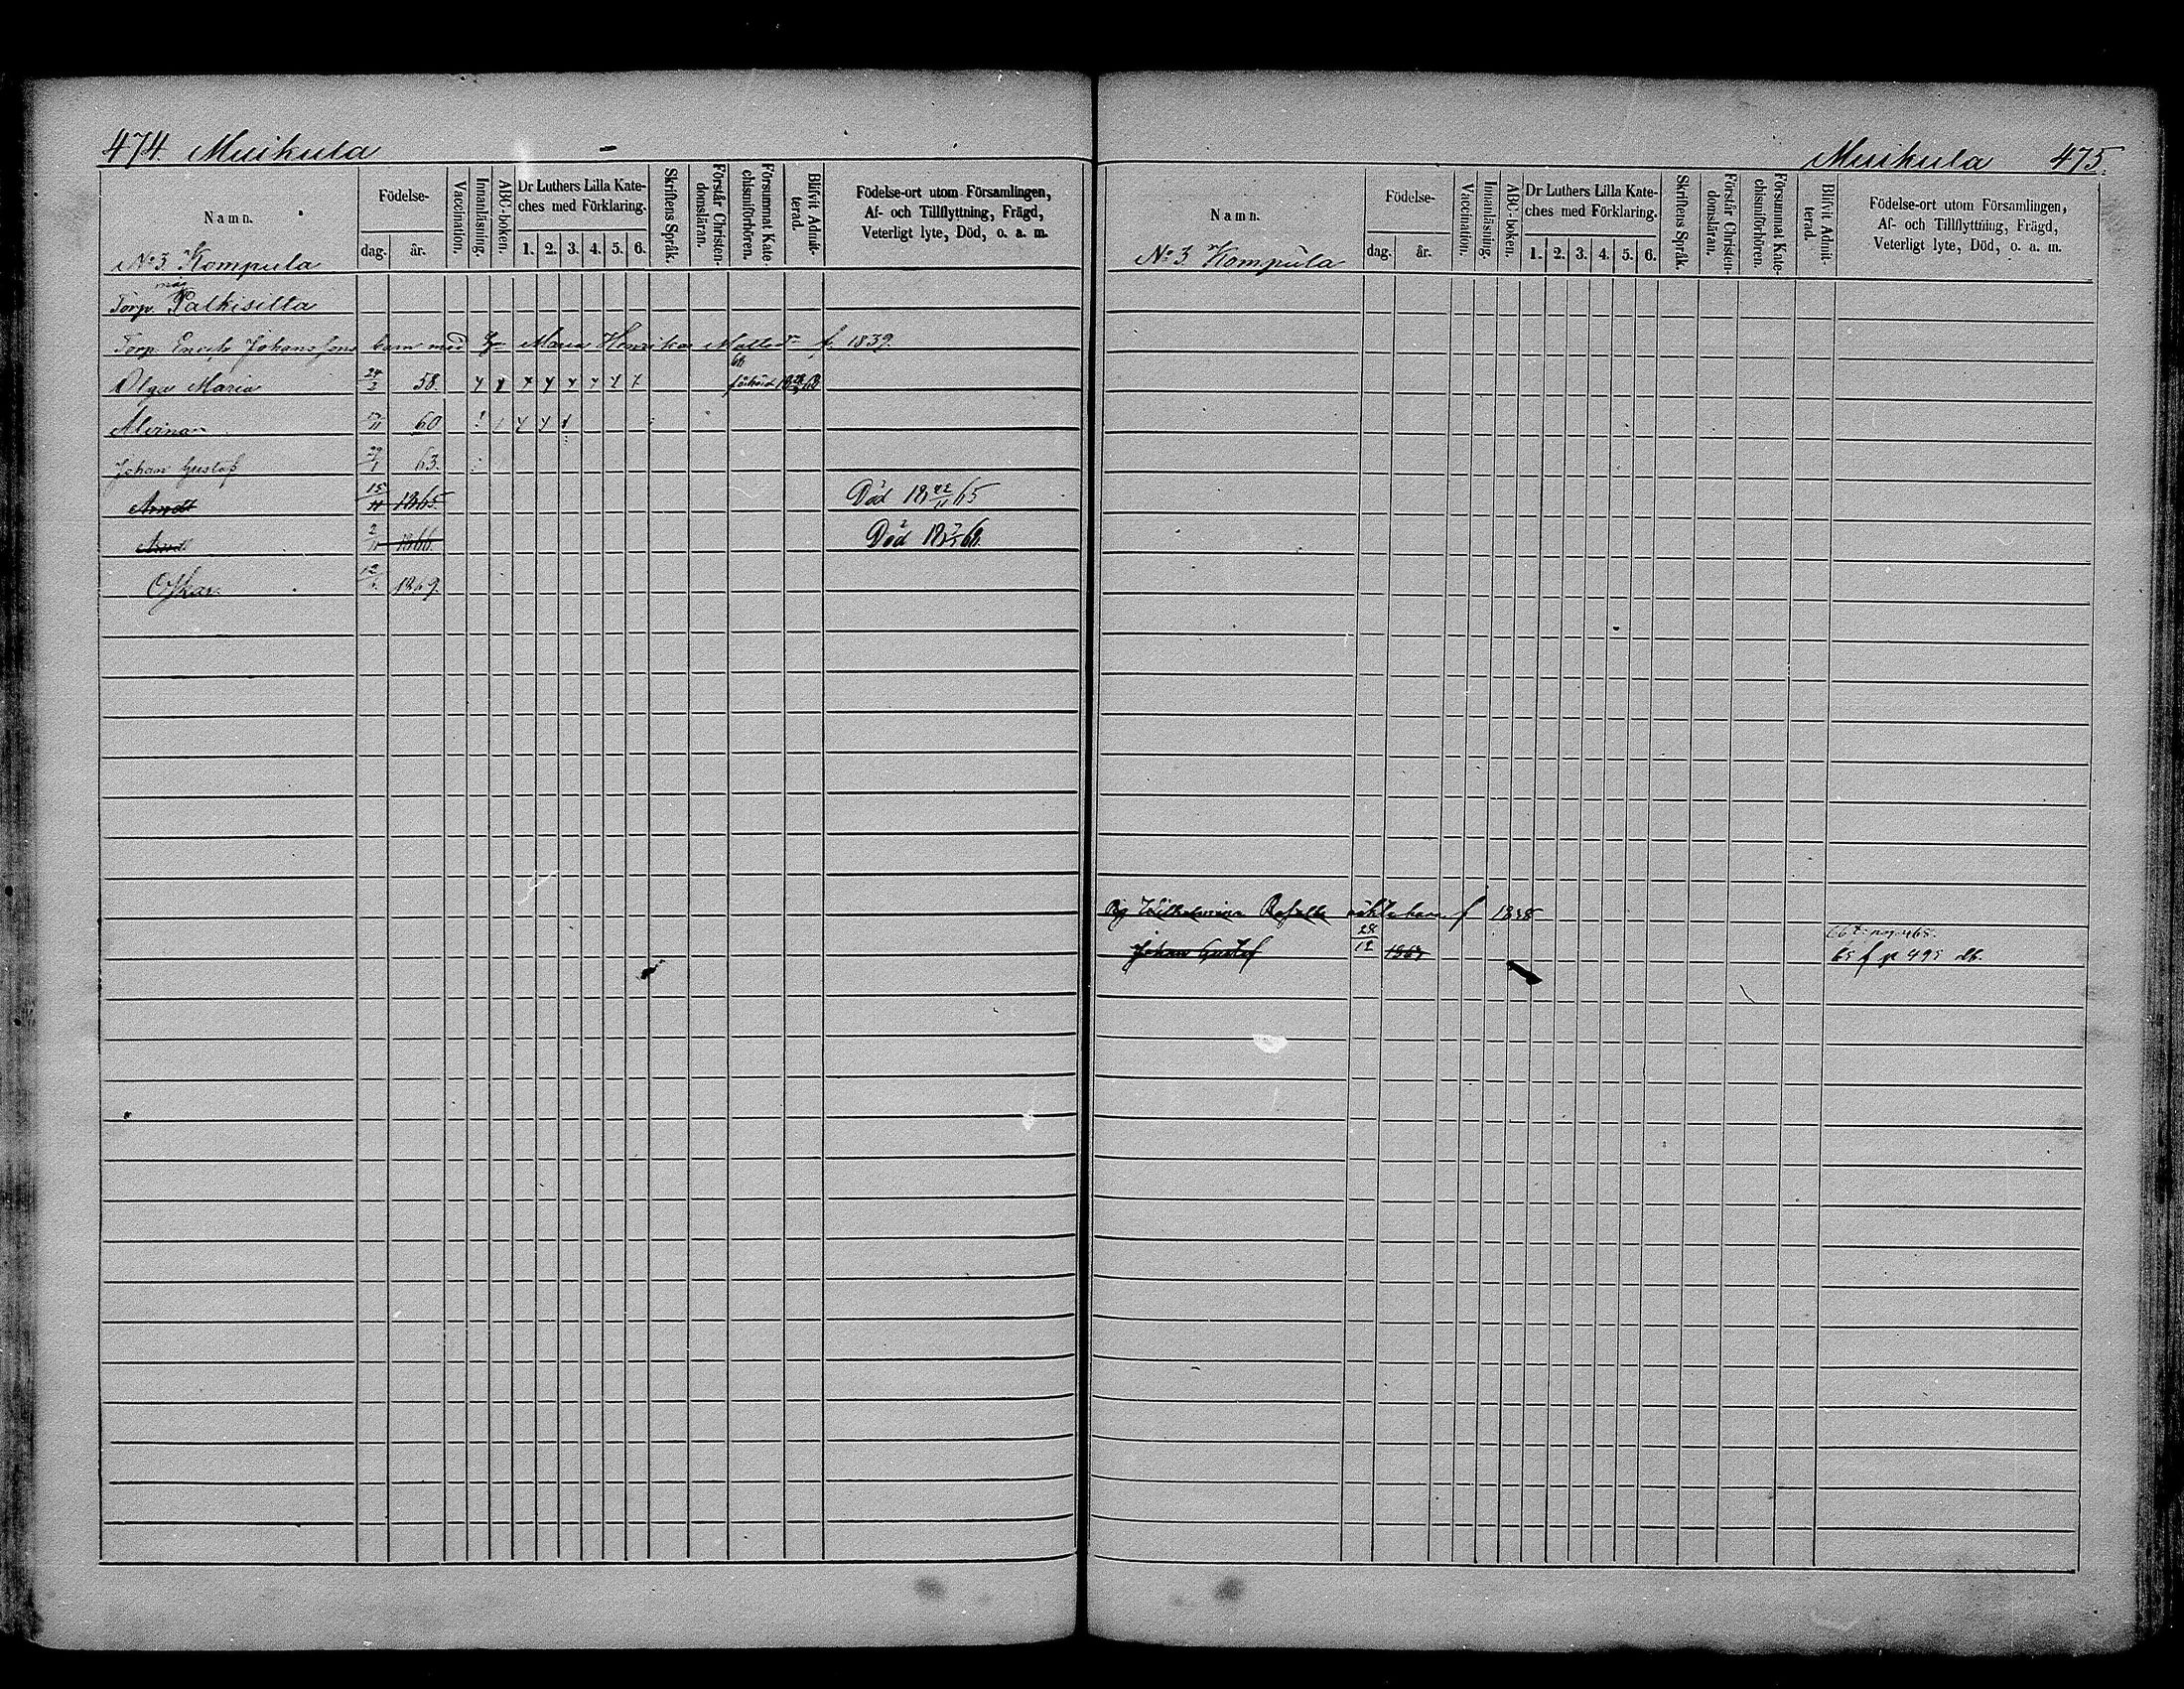 474. Muikula
Namn.
Födelse-
dag.
år.
Vaccination.
Innanläsning.
ABC-boken.
Dr Luthers Lilla Kate-
ches med Förklaring.
1. 2. 3. 4. 5. 6.
Skriftens Språk.
Förstår Christen-
domsläran.
Försummat Kate-
chismiförhören.
Blifvit Admit-
terad.
Födelse-ort utom Församlingen,
Af- och Tillflyttning, Frägd,
Veterligt lyte, Död, o. a. m.
No 3. Kompula
Torp. Palkisilla
Torp. Johanssons barn med Maria Henrika f. 1839.
Olga Maria 24/2 58.
Alvina 60
Johan Gustaf 29/1 63.
15/11 1865. Död 65
2/11 1866. Död 66.
Oskar 12 1869.
Muikula 475.
Namn.
Födelse-
dag.
år.
Vaccination.
Innanläsning.
ABC-boken.
Dr Luthers Lilla Kate-
ches med Förklaring.
1. 2. 3. 4. 5. 6.
Skriftens Språk.
Förstår Christen-
domsläran.
Försummat Kate-
chismiförhören.
Blifvit Admit-
terad.
Födelse-ort utom Församlingen,
Af- och Tillflyttning, Frägd,
Veterligt lyte, Död, o. a. m.
No 3. Kompula
Pig Wilhelmina oäkta barn f 1838
Johan Gustaf 28/12 65 f p 495